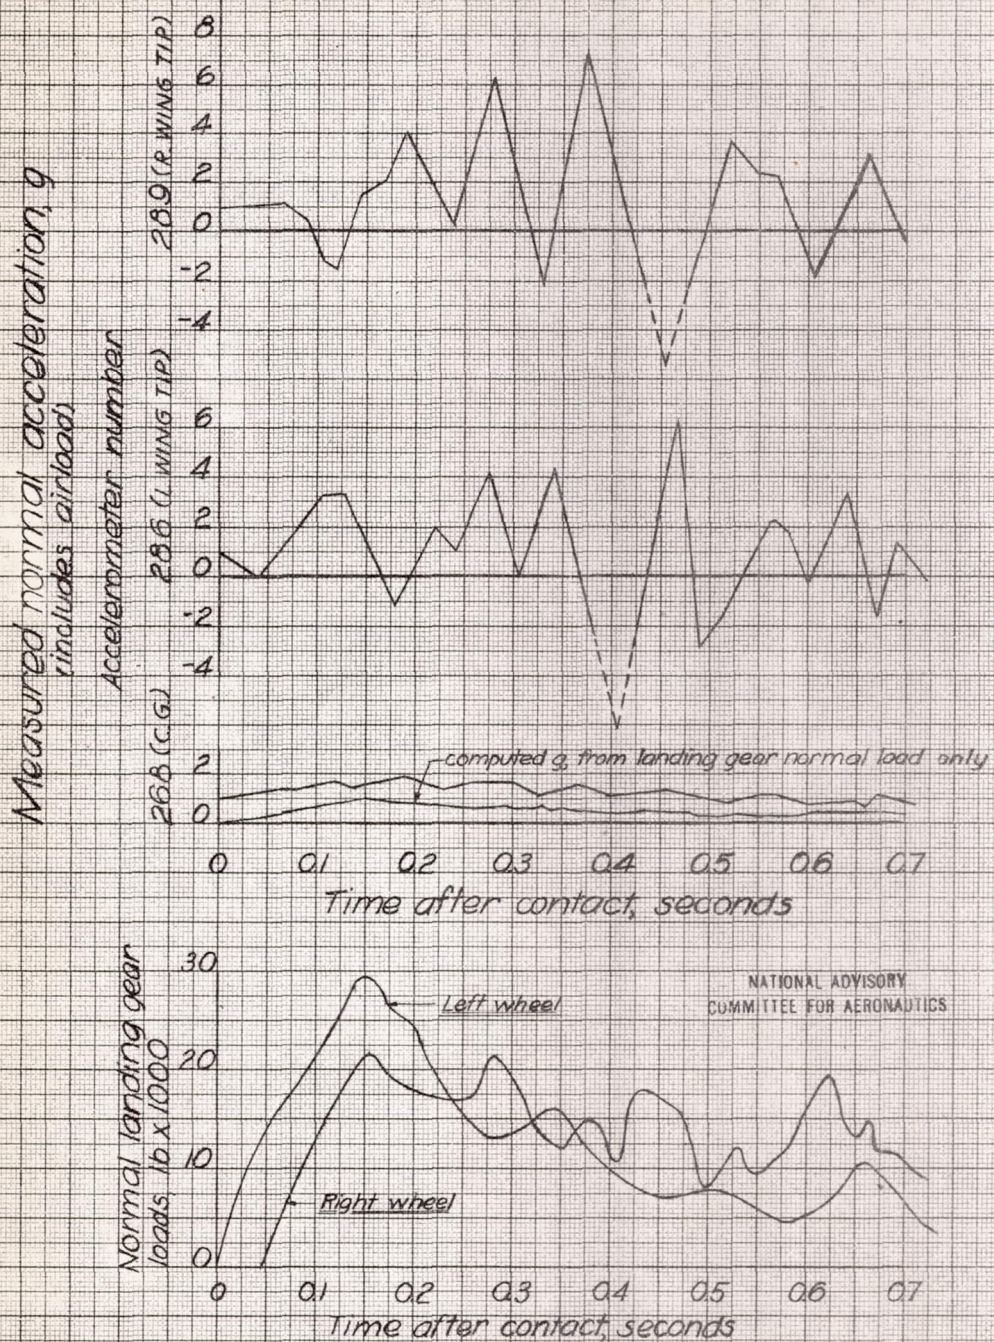 Measured normal acceleration, g
(includes airload)
Accelerometer number
289 (R. WING TIP)
8
6
4
2
0
-2
-4
286 (L WING TIP)
6
4
2
0
-2
-4
268 (C.G.)
2
0
computed g, from landing gear normal load only
0 0.1 0.2 0.3 0.4 0.5 0.6 0.7
Time after contact, seconds
Normal landing gear
loads, lb x 1000
30
20
10
0
NATIONAL ADVISORY
COMMITTEE FOR AERONAUTICS
Left wheel
Right wheel
0 0.1 0.2 0.3 0.4 0.5 0.6 0.7
Time after contact, seconds